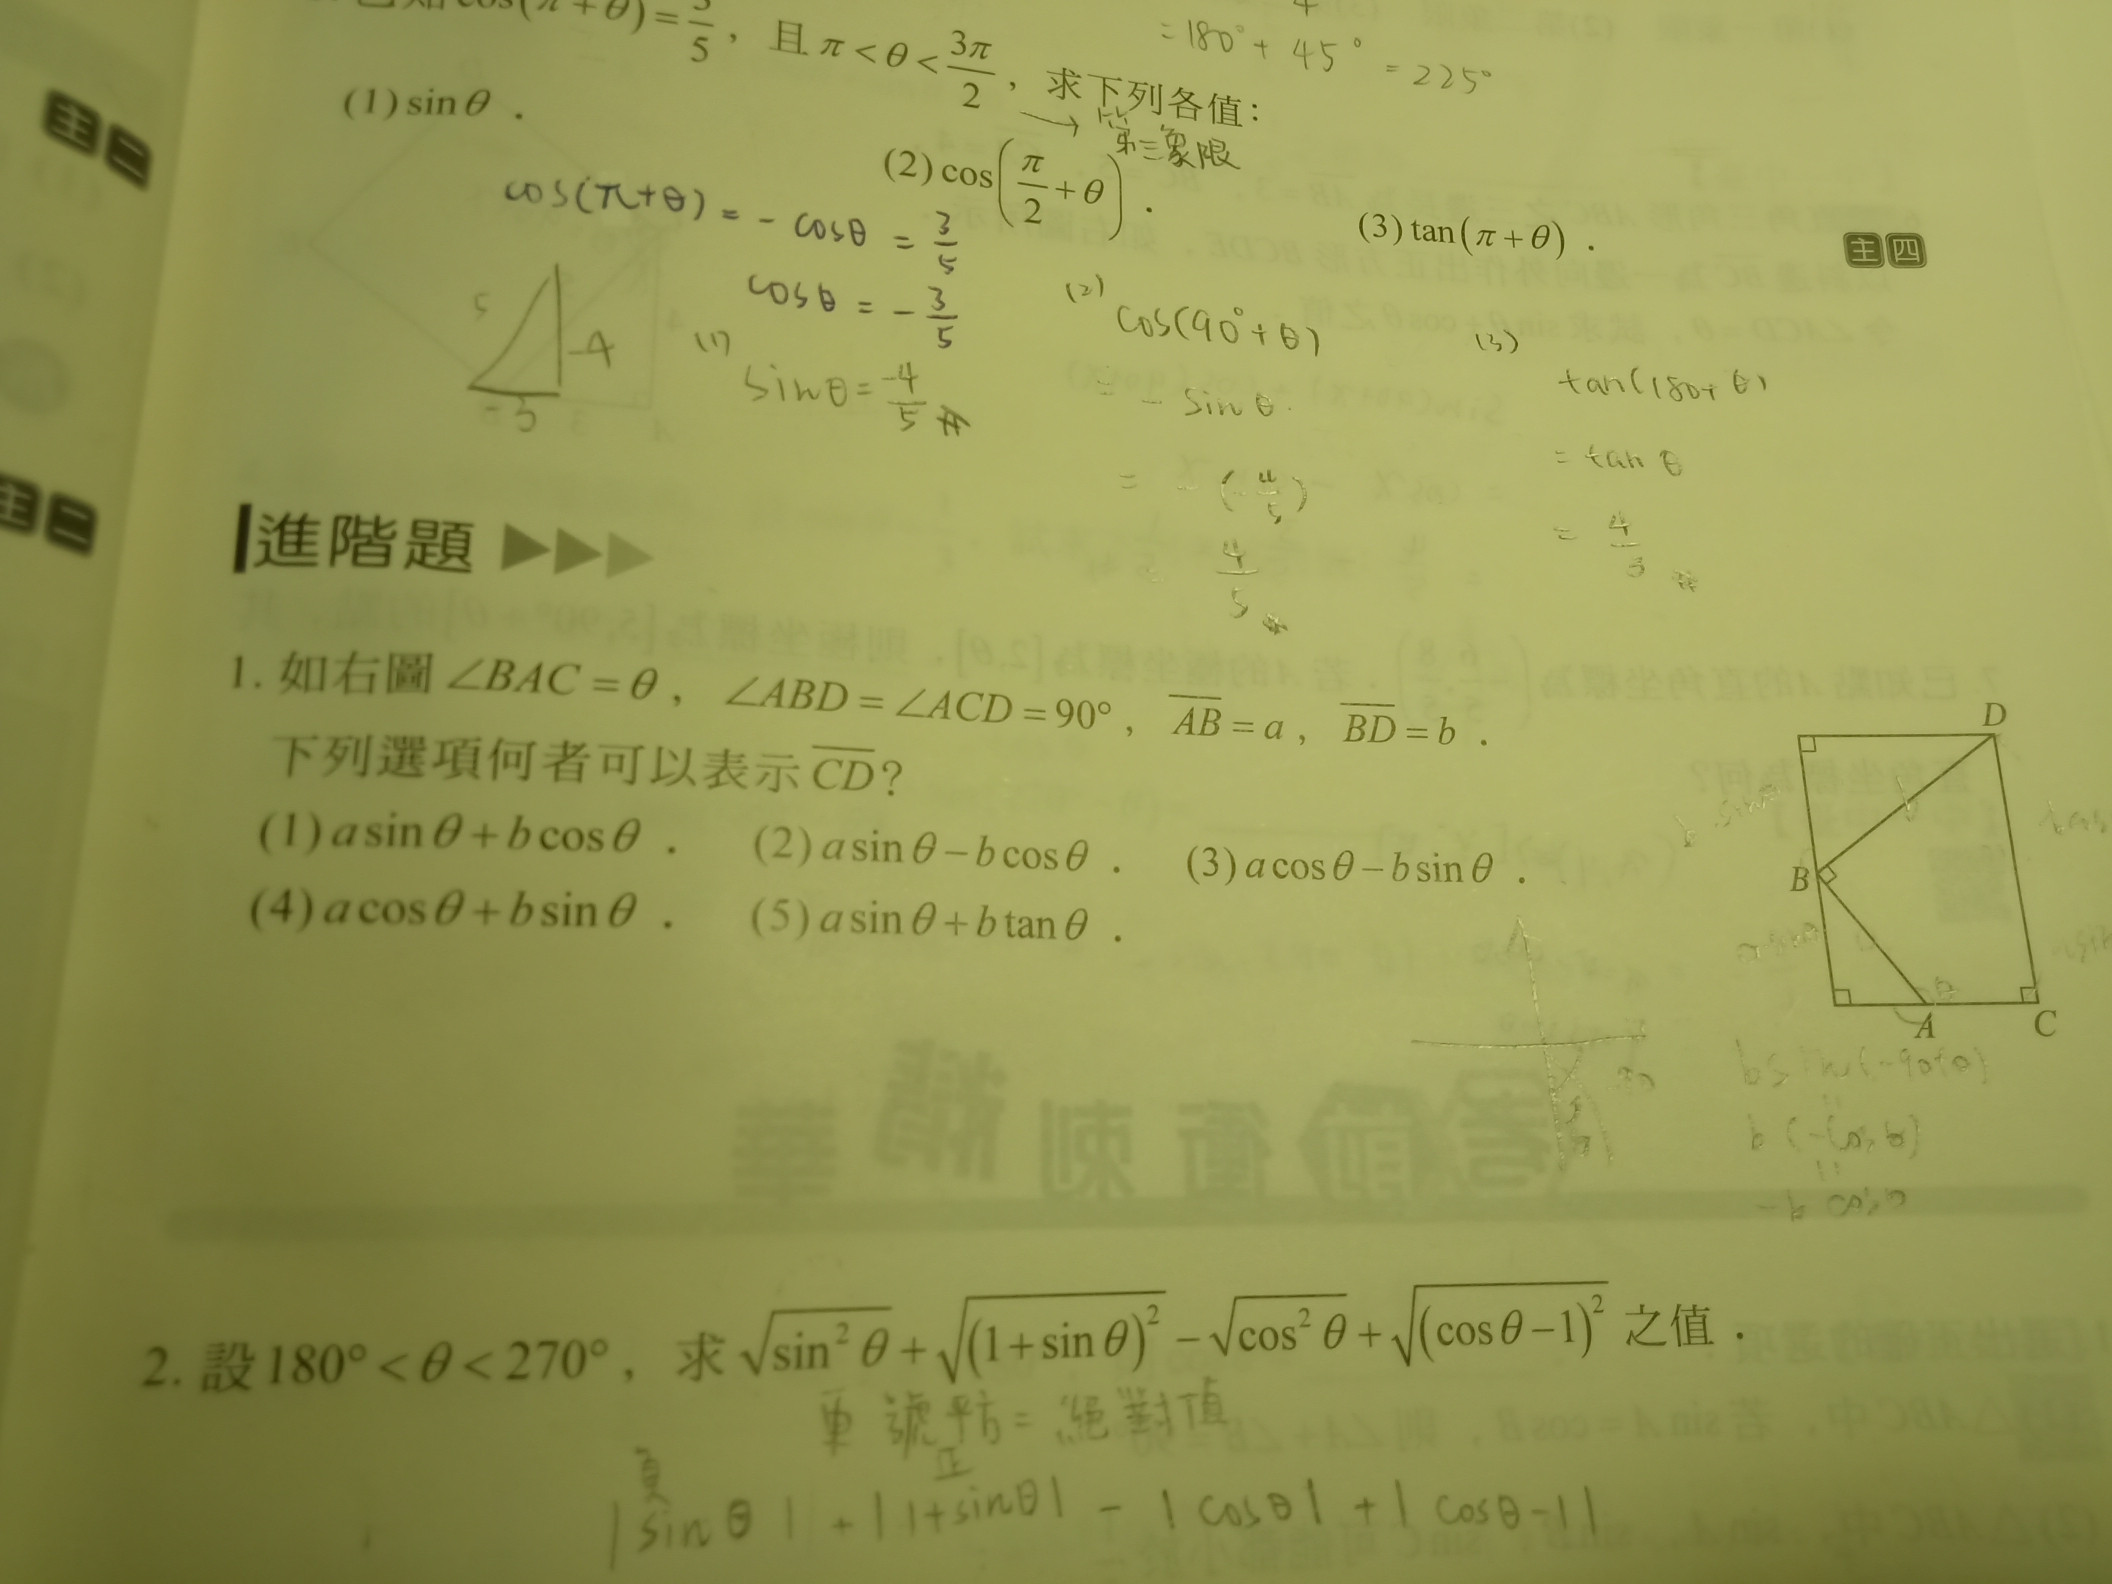 cos(π+θ)=3/5，且π<θ<3π/2，求下列各值：
=180°+45°=225°
→第三象限
(1) sinθ． (2) cos(π/2+θ)． (3) tan(π+θ)．
主二
主四
cos(π+θ)=-cosθ=3/5
cosθ=-3/5
5 -4 -3
(1) sinθ=-4/5
(2) cos(90°+θ)
=-sinθ
=-(-4/5)
=4/5
(3) tan(180+θ)
=tanθ
=4/3
主二
進階題
1. 如右圖∠BAC=θ，∠ABD=∠ACD=90°，AB=a，BD=b．
下列選項何者可以表示CD？
(1) a sinθ+b cosθ． (2) a sinθ-b cosθ． (3) a cosθ-b sinθ．
(4) a cosθ+b sinθ． (5) a sinθ+b tanθ．
D
B
A
C
b
θ
b sin(-90+θ)
b(-cosθ)
-b cosθ
2. 設180°<θ<270°，求√sin²θ+√(1+sinθ)²-√cos²θ+√(cosθ-1)²之值．
號平方=絕對值
負 正
|sinθ|+|1+sinθ|-|cosθ|+|cosθ-1|